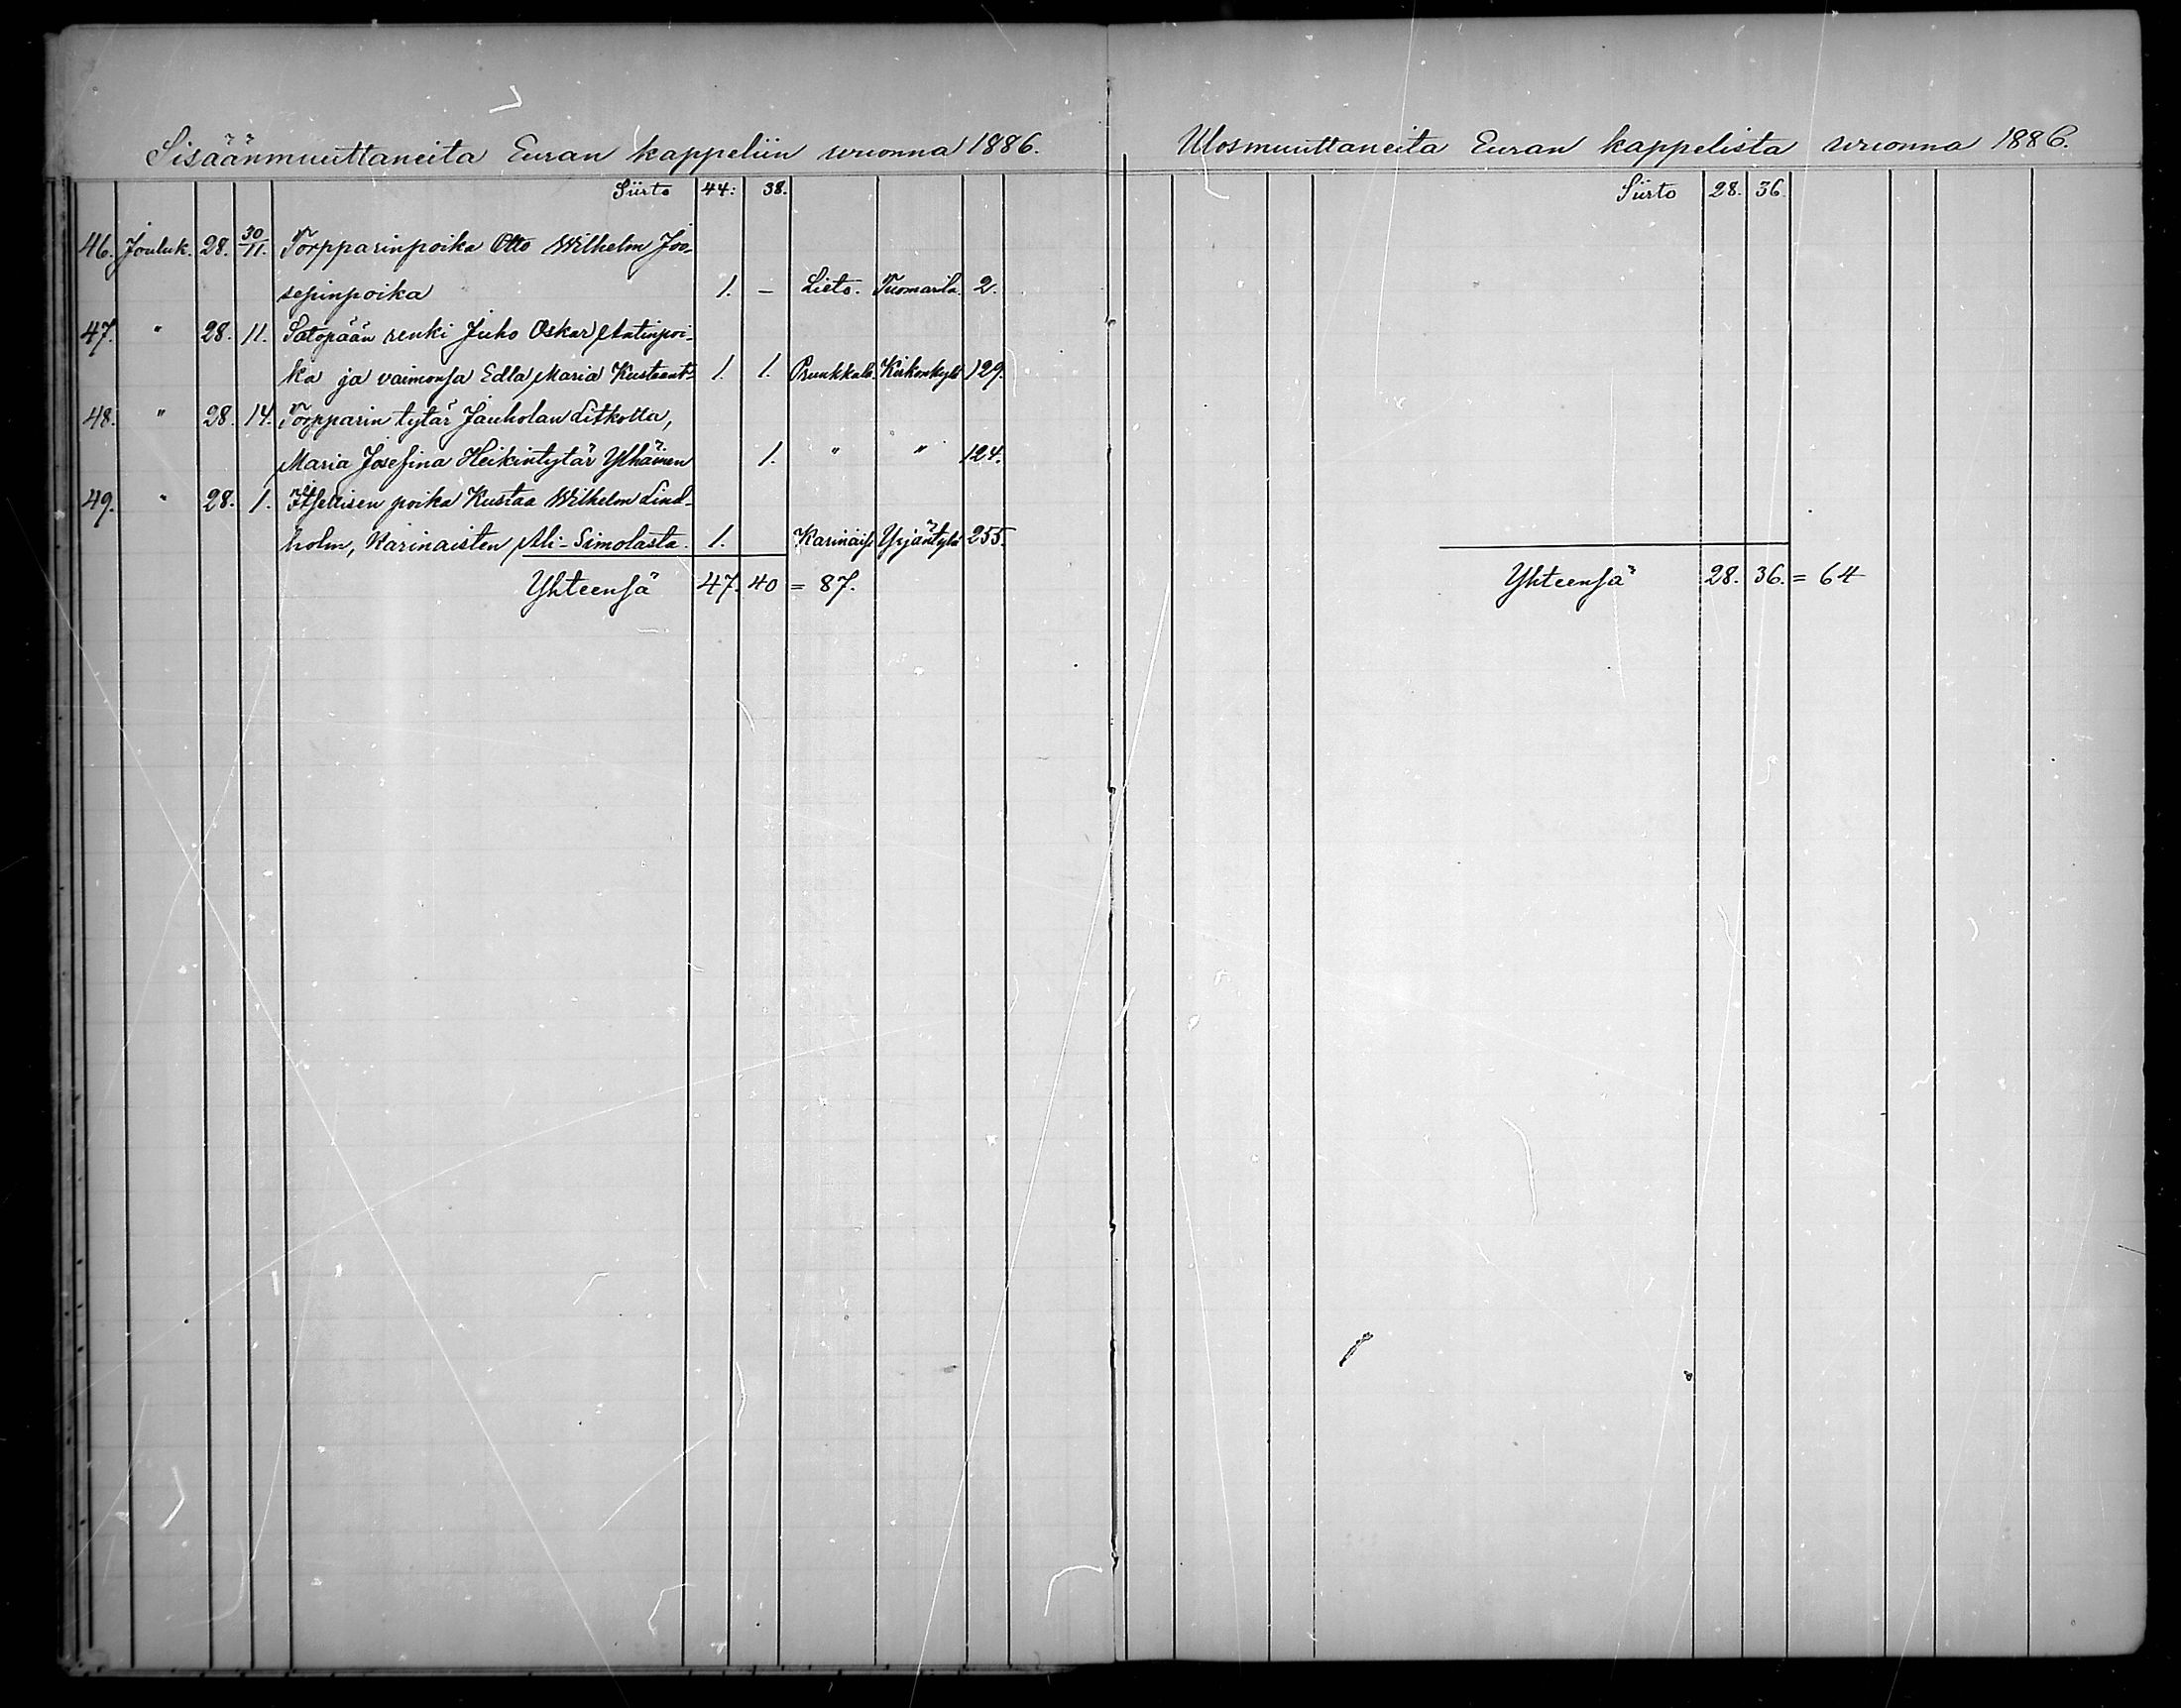 Sisäänmuuttaneita Euran kappeliin vuonna 1886.
Siirto 44: 38.
46. Jouluk. 28. 30/11. Torpparinpoika Otto Wilhelm Joo-
sepinpoika 1. — Lieto. Tuomarila. 2.
47. " 28. 11. Satopään renki Juho Oskar Antinpoi-
ka ja vaimonsa Edla Maria Kustaant: 1. 1. Prunkkala. Kirkonkylä 129.
48. " 28. 14. Torpparin tytär Jauholan
Maria Josefina Heikintytär Ylhäinen 1. " " 124.
49. " 28. 1. Itsellisen poika Kustaa Wilhelm Lind-
holm, Karinaisten Ali-Simolasta. 1. Karinais. Yrjäntylä 255.
Yhteensä 47. 40 = 87.
Ulosmuuttaneita Euran kappelista vuonna 1886.
Siirto 28. 36.
Yhteensä 28. 36. = 64